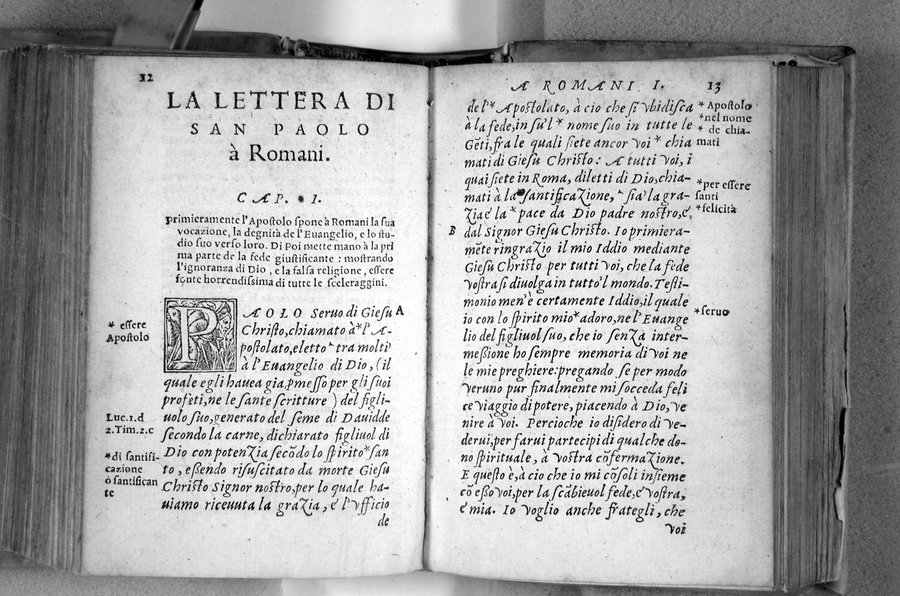 32
LA LETTERA DI
SAN PAOLO
à Romani.
CAP. I.
primieramente l'Apostolo spone à Romani la sua
vocazione, la degnità de l'Euangelio, e lo stu-
dio suo verso loro. Di poi mette mano à la pri
ma parte de la fede giustificante : mostrando
l'ignoranza di Dio , e la falsa religione, essere
fonte horrendissima di tutte le sceleraggini.
PAOLO Seruo di Giesu A
Christo, chiamato à * l'A-
postolato, eletto * tra molti
à l'Euangelio di Dio, (il
quale egli hauea gia ꝓmesso per gli suoi
profeti, ne le sante scritture ) del figli-
uolo suo, generato del seme di Dauidde
secondo la carne, dichiarato figliuol di
Dio con potenzia secōdo lo spirito * san
to , essendo risuscitato da morte Giesu
Christo Signor nostro, per lo quale ha-
uiamo riceuuta la grazia, e l'vfficio
de
* essere
Apostolo
Luc.1.d
2.Tim.2.c
*di santifi-
cazione
ò santifican
te
A ROMANI I. 13
de l'* Apostolato, à cio che si vbidisca
à la fede, in su'l * nome suo in tutte le
Gēti, fra le quali siete ancor voi * chia
mati di Giesu Christo : A tutti voi, i
quai siete in Roma, diletti di Dio, chia-
mati à la santificazione, * sia la gra-
zia e la * pace da Dio padre nostro, e
B dal Signor Giesu Christo. Io primiera-
mēte ringrazio il mio Iddio mediante
Giesu Christo per tutti voi, che la fede
vostra si diuolga in tutto'l mondo. Testi-
monio men'è certamente Iddio, il quale
io con lo spirito mio * adoro, ne l'Euange
lio del figliuol suo, che io senza inter-
messione ho sempre memoria di voi ne
le mie preghiere: pregando se per modo
veruno pur finalmente mi succeda feli
ce viaggio di potere, piacendo à Dio, ve
nire à voi. Percioche io disidero di ve-
derui, per farui partecipi di qualche do-
no spirituale, à vostra cōfermazione.
E questo è, à cio che io mi cōsoli insieme
cō esso voi, per la scābieuol fede, e vostra,
e mia. Io voglio anche frategli, che
voi
* Apostolo
*nel nome
* de chia-
mati
*per essere
santi
*felicità
*seruo